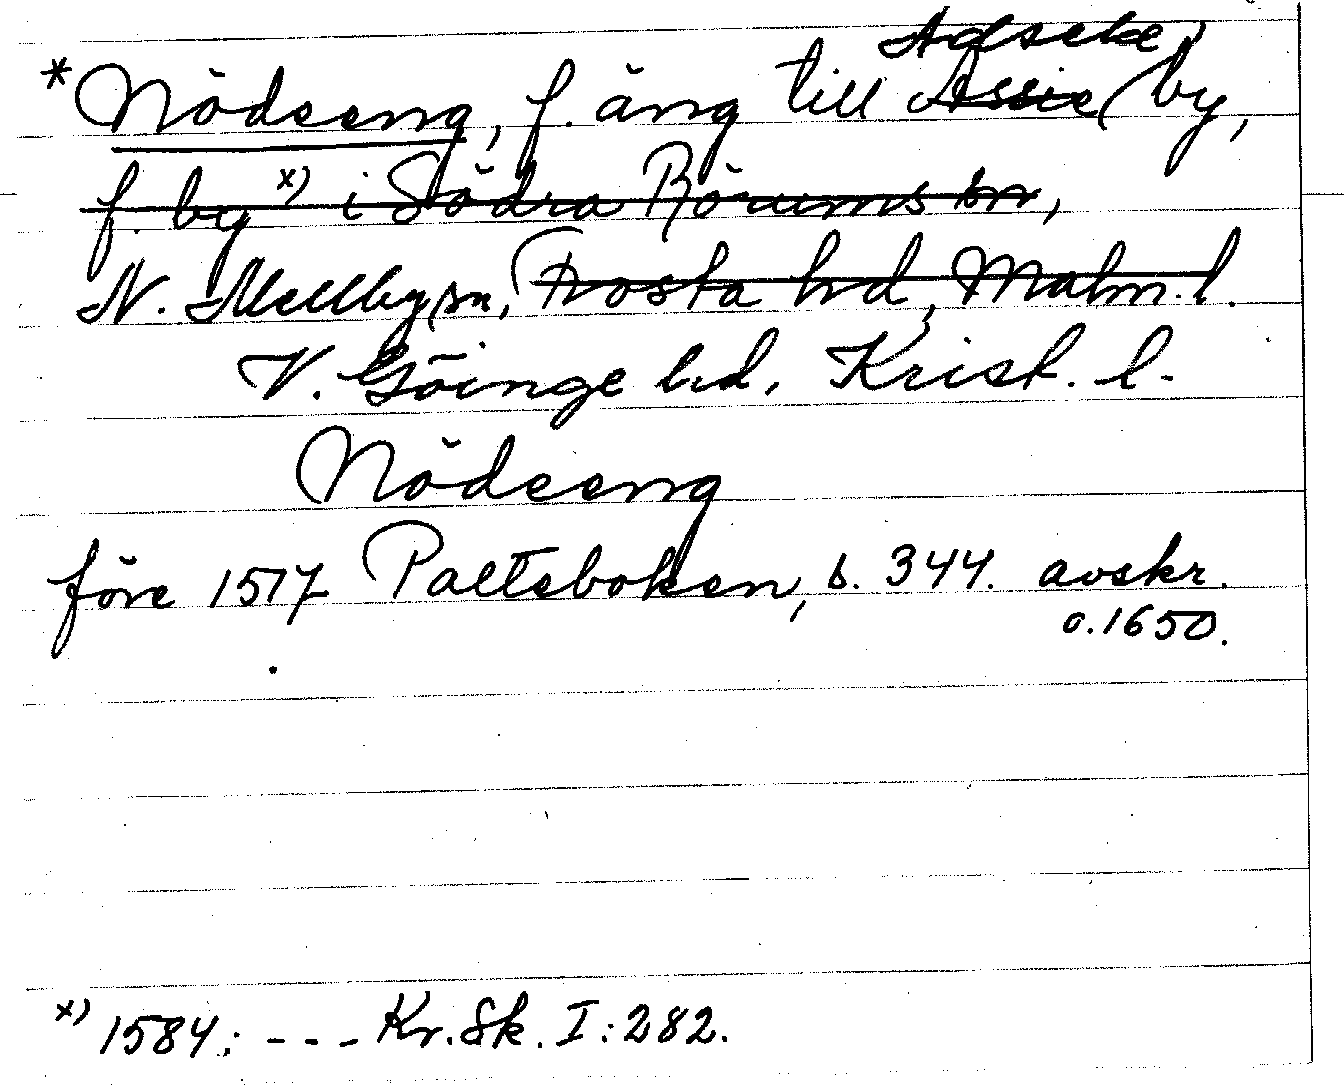 Adseke
*Nödeeng, f. äng till Assie by,
f. by x) i Södra Rörums sn,
N. Mellby sn, Frosta hd, Malm. l.
V. Göinge hd, Krist. l.
Nödeeng
före 1517 Palteboken, s. 344. avskr.
o. 1650.
x) 1584; --- Kr. Sk. I: 282.